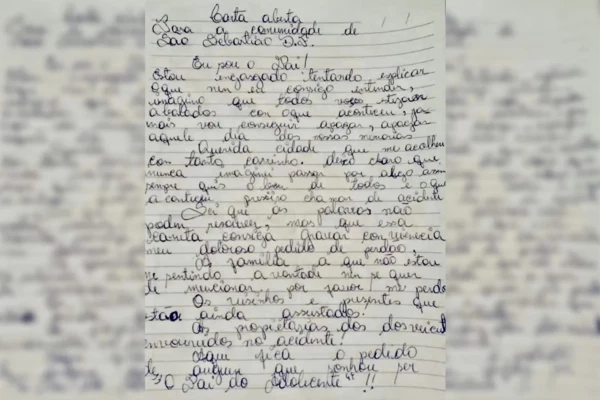 Carta aberta
Para a comunidade de
São Sebastião D.F.
Eu sou o Pai!
Estou engasgado tentando explicar
oque nem eu consigo entender,
imagino que todos vocês estejam
abalados com oque aconteceu, ja
mais vou conseguir apagar, apagar
aquele dia das nossas memorias
Querida cidade que me acolheu
con tanto carinho. deixo claro que
nunca imaginei passar por algo assim
sempre quis o bem de todos e o que
aconteceu, prefiro chamar de acidente
Sei que as palavras não
podem resolver, mas que essa
carta consiga gravar con
meu doloroso pedido de perdão,
As familia a que não estou
me sentindo a vontade nem se quer
de mencionar por favor me perdo
Os visinhos e presentes que
estão ainda assustados.
As proprietarias dos dos veicul
envolvidos no acidente!
Aqui fica o pedido
de alguen que sonhou ser
"O Pai do Adolecente" !!